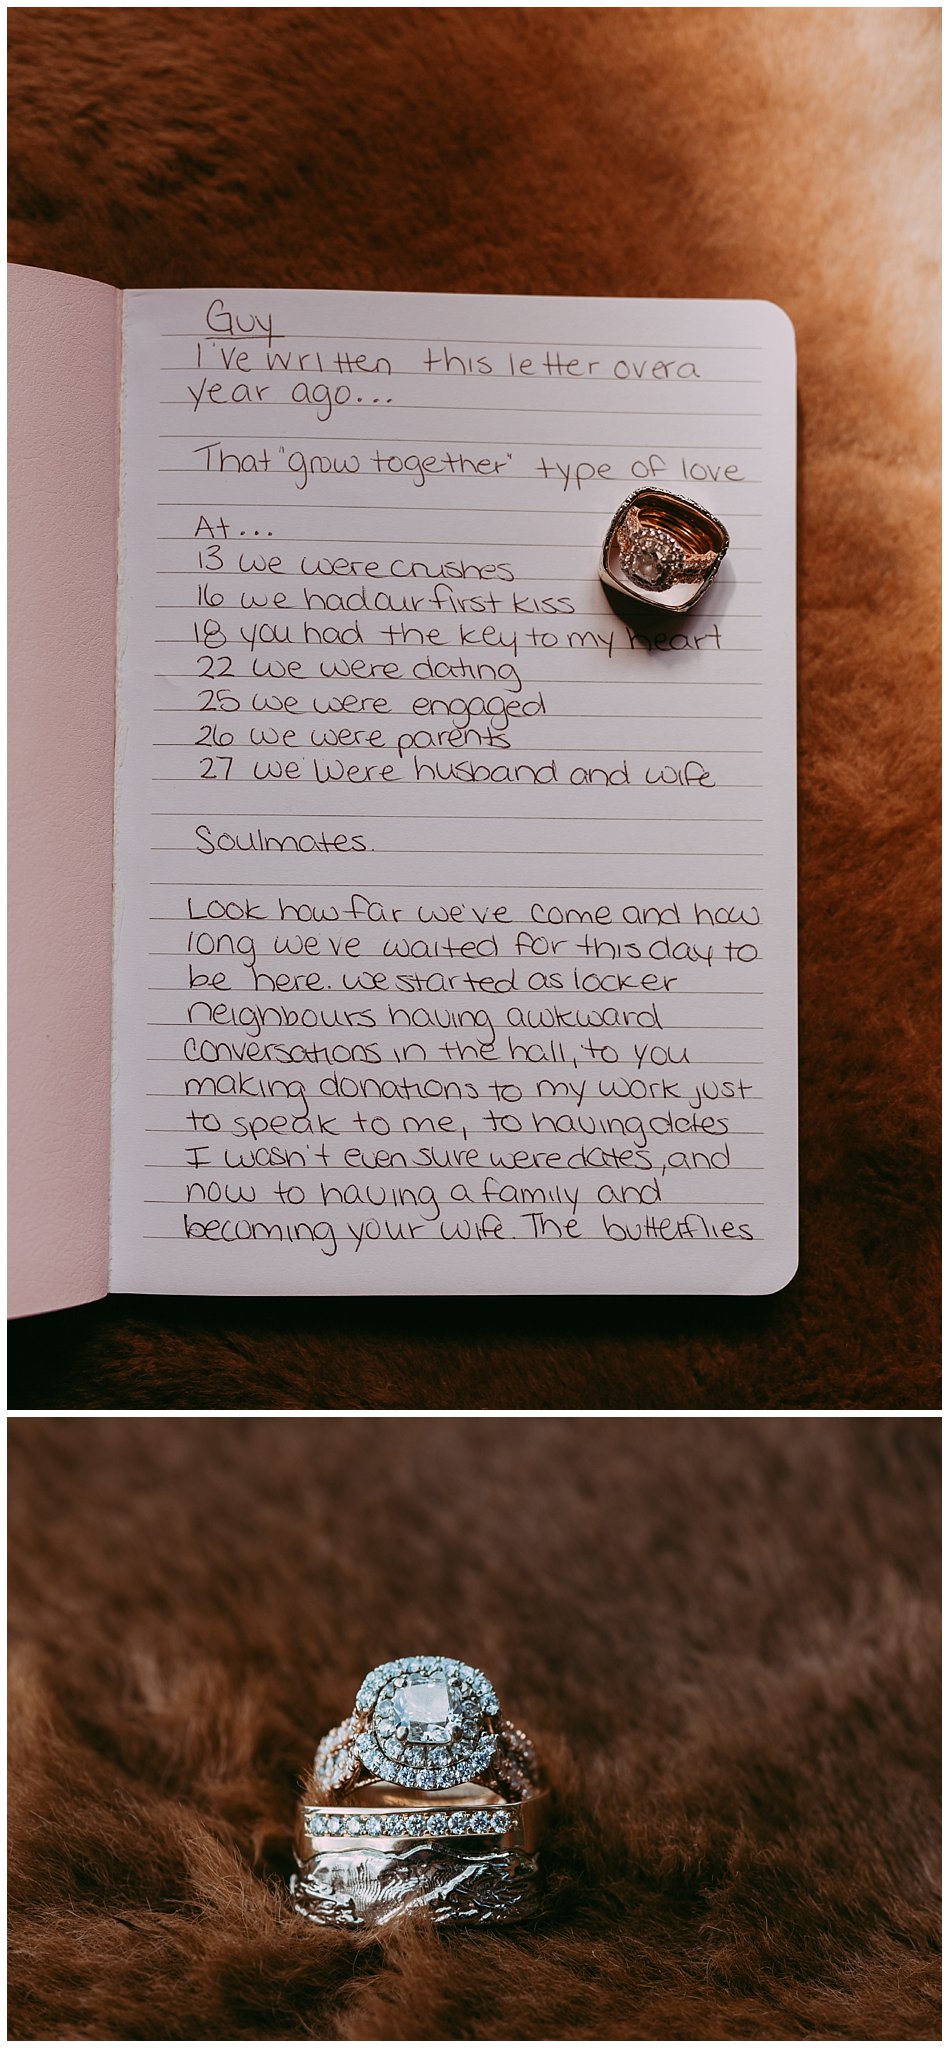 Guy
I've written this letter over a
year ago...
That "grow together" type of love
At...
13 we were crushes
16 we had our first kiss
18 you had the key to my heart
22 we were dating
25 we were engaged
26 we were parents
27 we were husband and wife
Soulmates.
Look how far we've come and how
long we've waited for this day to
be here. we started as locker
neighbours having awkward
conversations in the hall, to you
making donations to my work just
to speak to me, to having dates
I wasn't even sure were dates, and
now to having a family and
becoming your wife. The butterflies